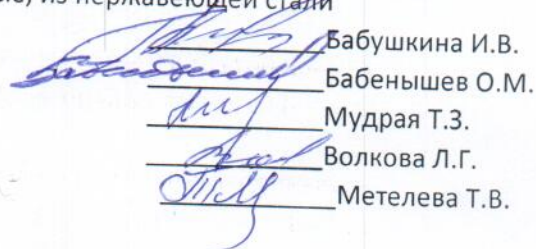 из нержавеющей стали
Бабушкина И.В.
Бабенышев О.М.
Мудрая Т.З.
Волкова Л.Г.
Метелева Т.В.